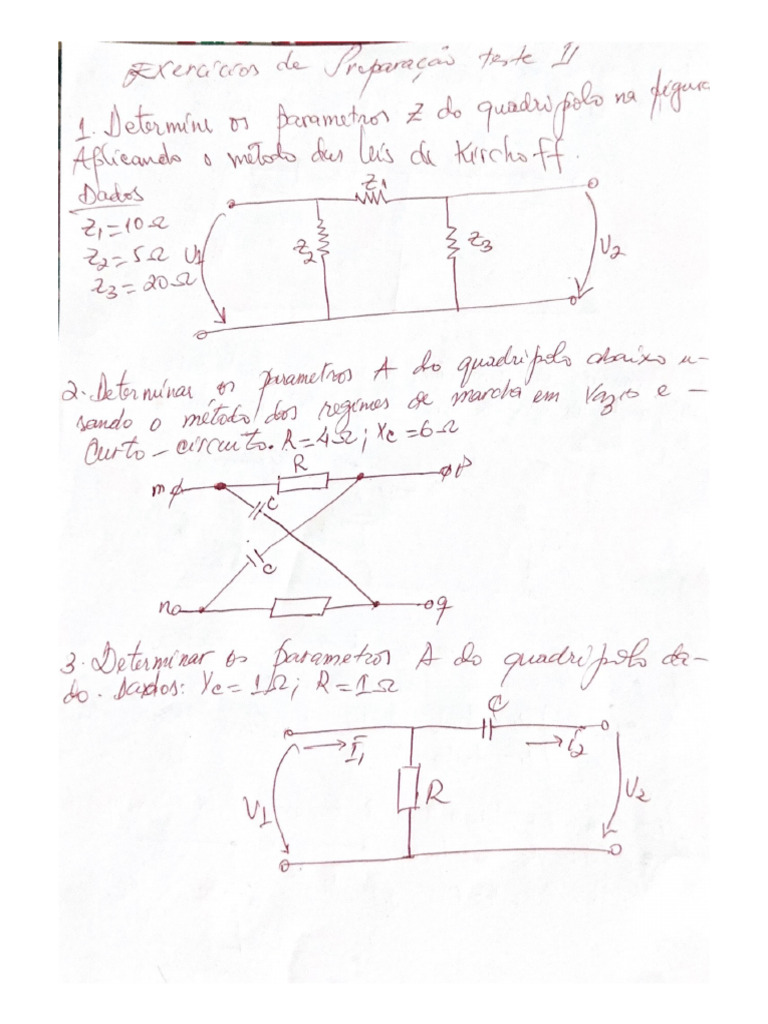 Exercícios de Preparação teste II
1. Determine os parametros Z do quadripolo na figura
Aplicando o método das leis de Kirchoff.
Dados
Z1=10Ω
Z2=5Ω
Z3=20Ω
Z1
Z2
Z3
U1
U2
2. Determinar os parametros A do quadripolo abaixo u-
sando o método dos regimes de marcha em vazio e -
Curto-circuito. R=4Ω; Xc=6Ω
R
m
p
C
C
n
q
3. Determinar os parametros A do quadripolo da-
do. Dados: Xc=1Ω; R=1Ω
C
I1
I2
U1
R
U2